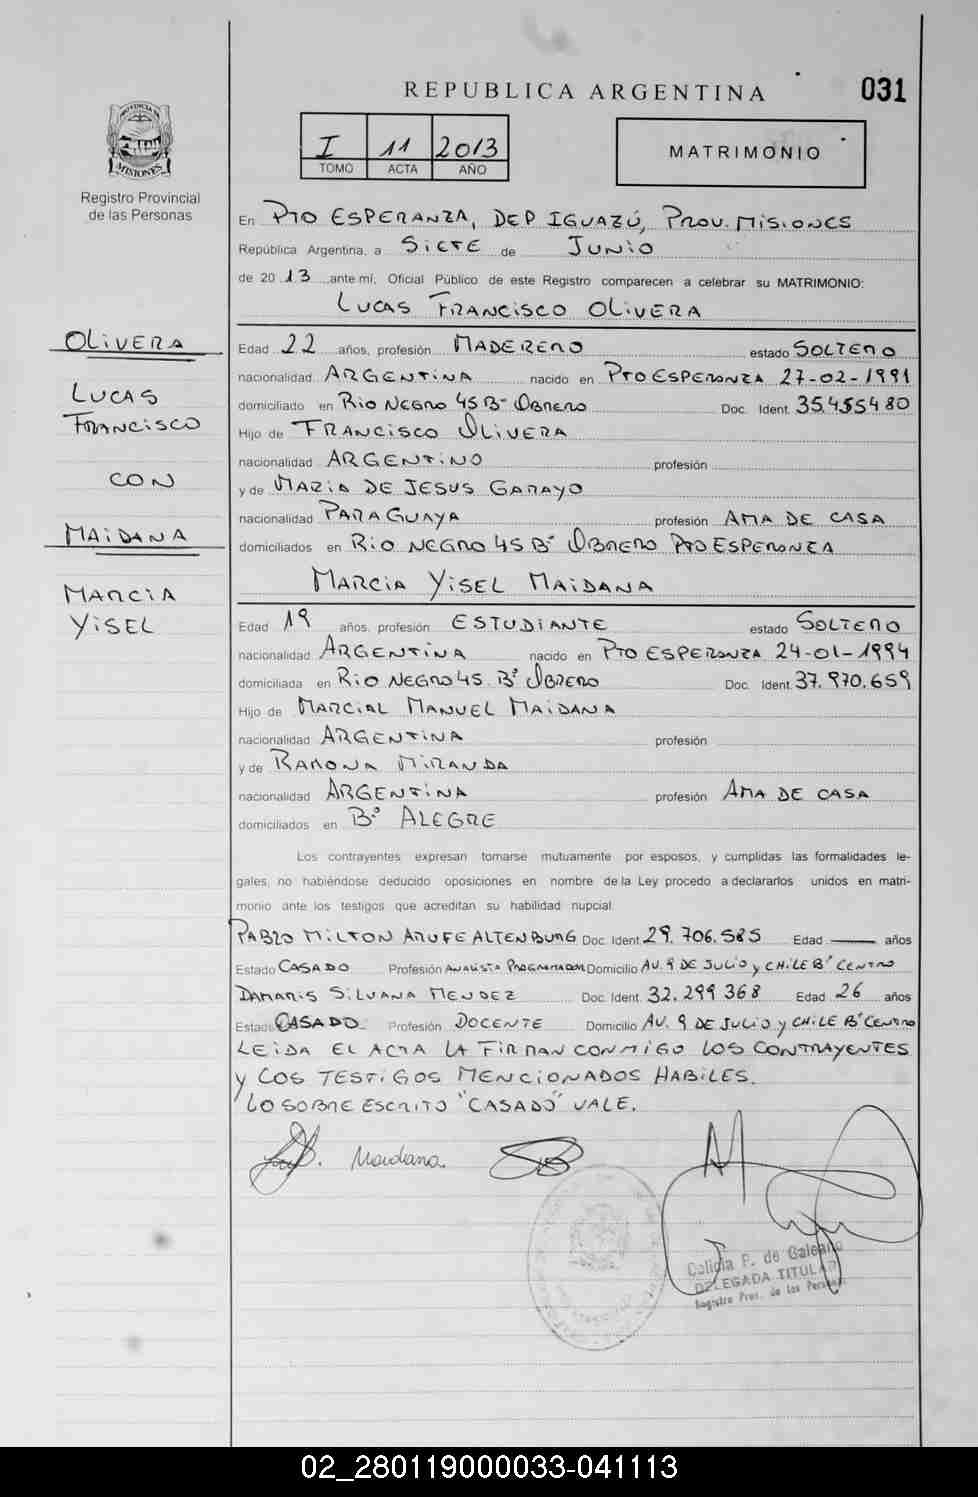 REPUBLICA ARGENTINA
031
PROVINCIA DE
MISIONES
Registro Provincial
de las Personas
I 11 2013
TOMO ACTA AÑO
MATRIMONIO
En PTO ESPERANZA, DEP IGUAZÚ, PROV. MISIONES
República Argentina, a SIETE de JUNIO
de 2013 ante mí, Oficial Público de este Registro comparecen a celebrar su MATRIMONIO:
LUCAS FRANCISCO OLIVERA
OLIVERA
LUCAS
FRANCISCO
CON
MAIDANA
MARCIA
YISEL
Edad 22 años, profesión MADERERO estado SOLTERO
nacionalidad ARGENTINA nacido en PTO ESPERANZA 27-02-1991
domiciliado en RIO NEGRO 45 B° OBRERO Doc. Ident. 35.455480
Hijo de FRANCISCO OLIVERA
nacionalidad ARGENTINO profesión
y de MARIA DE JESUS GARAYO
nacionalidad PARAGUAYA profesión AMA DE CASA
domiciliados en RIO NEGRO 45 B° OBRERO PTO ESPERANZA
MARCIA YISEL MAIDANA
Edad 19 años, profesión ESTUDIANTE estado SOLTERO
nacionalidad ARGENTINA nacido en PTO ESPERANZA 24-01-1994
domiciliada en RIO NEGRO 45 B° OBRERO Doc. Ident. 37.970.659
Hijo de MARCIAL MANUEL MAIDANA
nacionalidad ARGENTINA profesión
y de RAMONA MIRANDA
nacionalidad ARGENTINA profesión AMA DE CASA
domiciliados en B° ALEGRE
Los contrayentes expresan tomarse mutuamente por esposos, y cumplidas las formalidades le-
gales, no habiéndose deducido oposiciones en nombre de la Ley procedo a declararlos unidos en matri-
monio ante los testigos que acreditan su habilidad nupcial.
PABLO MILTON ARUFE ALTENBURG Doc. Ident. 29.706.585 Edad — años
Estado CASADO Profesión ANALISTA PROGRAMADOR Domicilio AV. 9 DE JULIO y CHILE B° CENTRO
DAMARIS SILVANA MENDEZ Doc. Ident. 32.299 368 Edad 26 años
Estado CASADO Profesión DOCENTE Domicilio AV. 9 DE JULIO y CHILE B° CENTRO
LEIDA EL ACTA LA FIRMAN CONMIGO LOS CONTRAYENTES
y LOS TESTIGOS MENCIONADOS HABILES.
LO SOBRE ESCRITO "CASADO" VALE.
Maidana.
P. de Galeano
DELEGADA TITULAR
Registro Prov. de las Personas
02_280119000033-041113